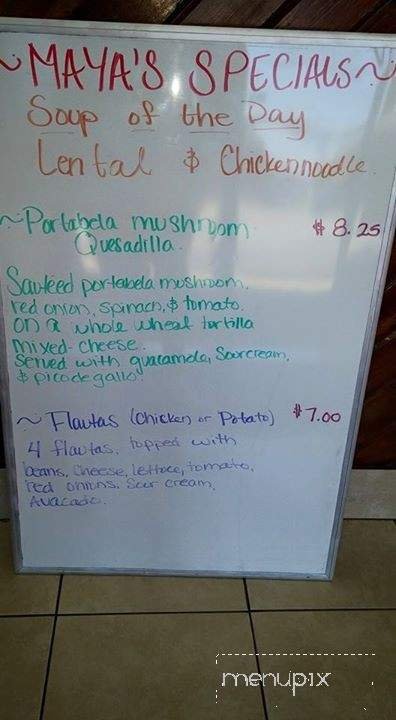 ~MAYA'S SPECIALS~
Soup of the Day
Lental & Chickennoodle.
~Portabela mushroom $8.25
Quesadilla.
Sauteed portabela mushroom.
red onion, spinach, & tomato.
on a whole wheat tortilla
mixed-cheese.
Served with guacamole, Sourcream,
& pico de gallo.
~ Flautas (Chicken or Potato) $7.00
4 flautas, topped with
beans, cheese, lettuce, tomato,
red onions. Sour cream,
Avacado.
menupix